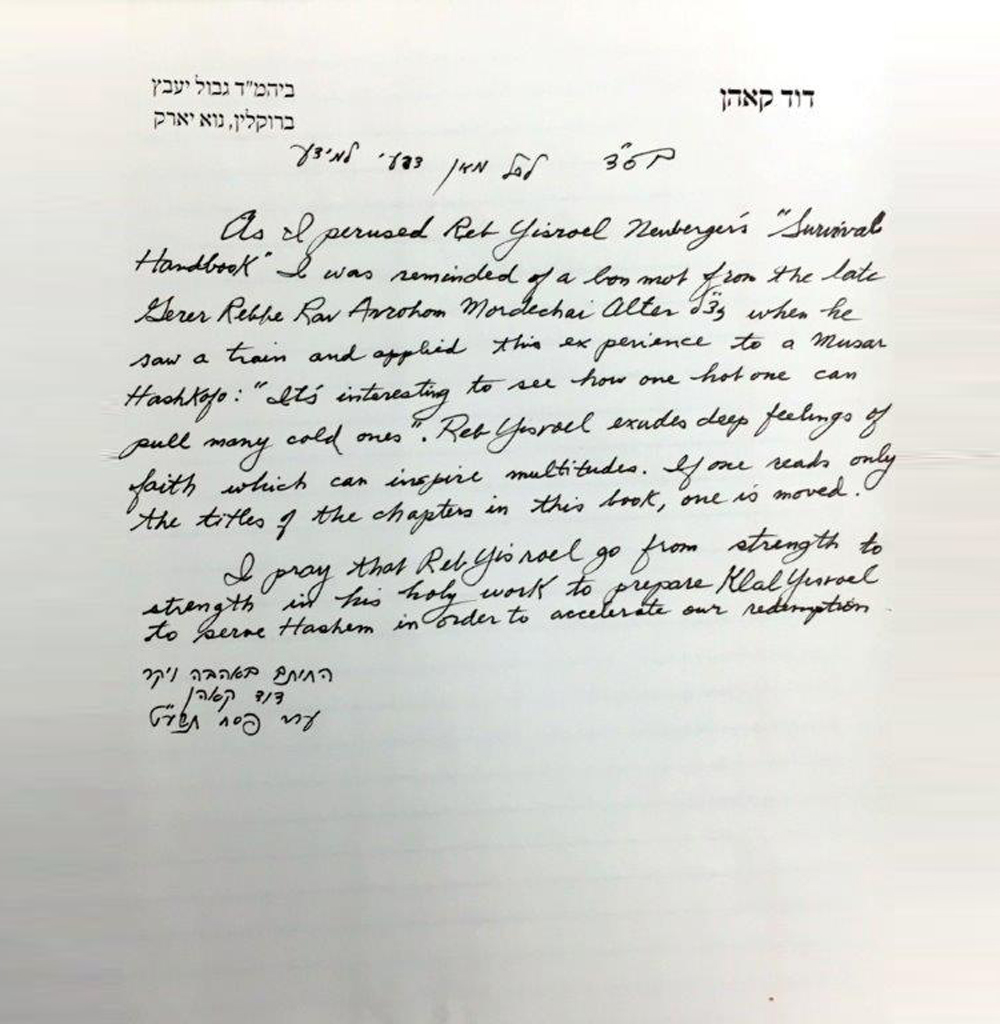 דוד קאהן
ביהמ״ד גבול יעבץ
ברוקלין, נוא יארק
בס״ד לכל מאן דבעי למידע
As I perused Reb Yisroel Neuberger's "Survival
Handbook" I was reminded of a bon mot from the late
Gerer Rebbe Rav Avrohom Mordechai Alter זצ״ל when he
saw a train and applied this experience to a Musar
Hashkofo: "It's interesting to see how one hot one can
pull many cold ones". Reb Yisroel exudes deep feelings of
faith which can inspire multitudes. If one reads only
the titles of the chapters in this book, one is moved.
I pray that Reb Yisroel go from strength to
strength in his holy work to prepare Klal Yisroel
to serve Hashem in order to accelerate our redemption.
החותם באהבה ויקר
דוד קאהן
ערב פסח תשע״ט